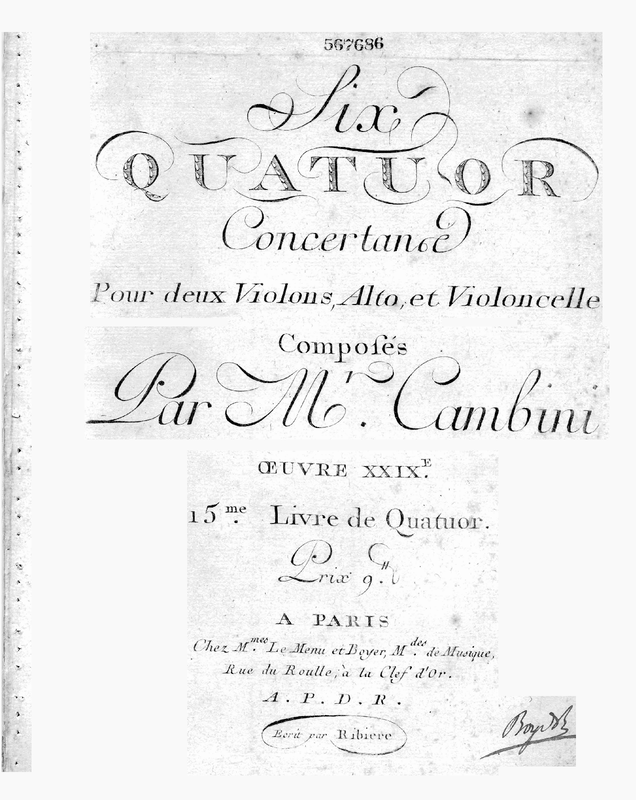 567686
Six
QUATUOR
Concertans
Pour deux Violons, Alto, et Violoncelle
Composés
Par Mr. Cambini
ŒUVRE XXIX.E
15.me Livre de Quatuor.
Prix 9.tt
A PARIS
Chez M.mes Le Menu et Boyer, M.des de Musique,
Rue du Roulle, à la Clef d'Or.
A. P. D. R.
Ecrit par Ribiere